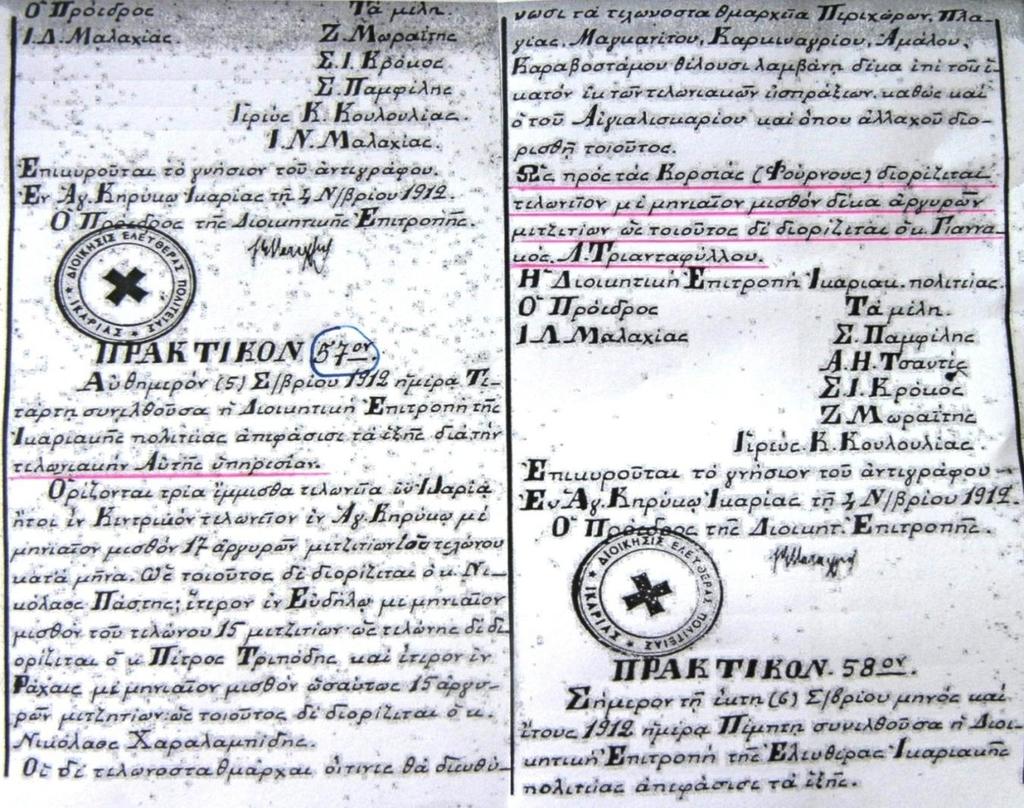 Ο Πρόεδρος Τα μέλη
Ι.Δ. Μαλαχίας. Ζ. Μωραΐτης
Σ.Ι. Κρόκος
Σ. Παμφίλης
Ιερεύς Κ. Κουλουλίας.
Ι.Ν. Μαλαχίας.
Ἐπικυροῦται τὸ γνήσιον τοῦ ἀντιγράφου.
Ἐν Ἁγ. Κηρύκῳ Ἰκαρίας τῇ 4 Ν/βρίου 1912.
Ὁ Πρόεδρος τῆς Διοικητικῆς Ἐπιτροπῆς.
ΔΙΟΙΚΗΣΙΣ ΕΛΕΥΘΕΡΑΣ ΠΟΛΙΤΕΙΑΣ ΙΚΑΡΙΑΚΗΣ
ΠΡΑΚΤΙΚΟΝ 57ον.
Αὐθημερόν (5) Σ/βρίου 1912 ἡμέρα Τε-
τάρτη συνελθοῦσα ἡ Διοικητική Ἐπιτροπή τῆς
Ἰκαριακῆς πολιτείας ἀπεφάσισε τὰ ἑξῆς διὰ τὴν
τελωνιακήν Αὐτῆς ὑπηρεσίαν.
Ὁρίζονται τρία ἔμμισθα τελωνεῖα ἐν Ἰκαρίᾳ
ἤτοι ἐν Κεντρικόν τελωνεῖον ἐν Ἁγ. Κηρύκῳ μέ
μηνιαῖον μισθόν 17 ἀργυρῶν μετζιτίων τοῦ τελώνου
κατά μῆνα. Ὡς τοιοῦτος δέ διορίζεται ὁ κ. Νι-
κόλαος Πάστης; ἕτερον ἐν Εὐδήλῳ μέ μηνιαῖον
μισθόν τοῦ τελώνου 15 μετζιτίων ὡς τελώνης δέ δι-
ορίζεται ὁ κ Πέτρος Τριπόδης καί ἕτερον ἐν
Ράχαις μέ μηνιαῖον μισθόν ὡσαύτως 15 ἀργυ-
ρῶν μετζητίων. ὡς τοιοῦτος δέ διορίζεται ὁ κ.
Νικόλαος Χαραλαμπίδης.
Οἱ δέ τελωνοσταθμάρχαι οἵτινες θά διευθύ-
νωσι τά τελωνοσταθμαρχεῖα Περιχώρων, Πλα-
γίας, Μαγκανίτου, Καρκιναγρίου, Ἀμάλου,
Καραβοστάμου θέλουσι λαμβάνῃ δέκα ἐπί τοῖς ἑ-
κατόν ἐκ τῶν τελωνιακῶν εἰσπράξεων. καθώς καί
ὁ τοῦ Αἰγιαλισκαρίου καί ὅπου ἀλλαχοῦ διο-
ρισθῇ τοιοῦτος.
Ὡς πρός τάς Κορσιάς (Φούρνους) διορίζεται
τελωνεῖον μέ μηνιαῖον μισθόν δέκα ἀργυρῶν
μιτζιτίων ὡς τοιοῦτος δέ διορίζεται ὁ κ. Γιαννα-
κός. Λ. Τριανταφύλλου.
Ἡ Διοικητική Ἐπιτροπή Ἰκαριακ. πολιτείας.
Ὁ Πρόεδρος Τά μέλη.
Ι.Λ. Μαλαχίας Σ. Παμφίλης
Α.Η. Τσαντές
Σ.Ι. Κρόκος
Ζ. Μωραΐτης
Ιερεύς Κ. Κουλουλίας
Ἐπικυροῦται τό γνήσιον τοῦ ἀντιγράφου
Ἐν Ἁγ. Κηρύκῳ Ἰκαρίας τῇ 4 Ν/βρίου 1912.
Ὁ Πρόεδρος τῆς Διοικητ. Ἐπιτροπῆς.
ΔΙΟΙΚΗΣΙΣ ΕΛΕΥΘΕΡΑΣ ΠΟΛΙΤΕΙΑΣ ΙΚΑΡΙΑΚΗΣ
ΠΡΑΚΤΙΚΟΝ. 58ον.
Σήμερον τῇ ἕκτῃ (6) Σ/βρίου μηνός καί
ἔτους 1912 ἡμέρα Πέμπτη συνελθοῦσα ἡ Διοι-
κητική Ἐπιτροπή τῆς Ἐλευθέρας Ἰκαριακῆς
πολιτείας ἀπεφάσισε τά ἑξῆς.